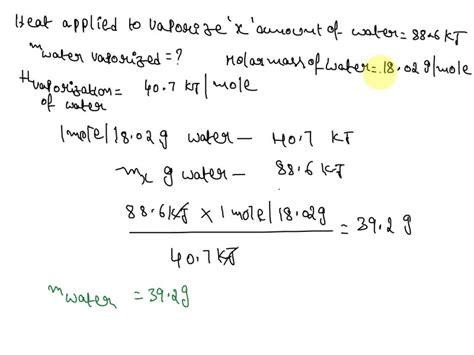 Heat applied to vaporize 'x' amount of water = 88.6 KJ
m water vaporized = ?
Molar mass of water = 18.02 g/mole
H vaporization of water = 40.7 KJ/mole
1 mole/18.02g water — 40.7 KJ
mx g water — 88.6 KJ
88.6 KJ x 1 mole/18.02g = 39.2 g
40.7 KJ
m water = 39.2g